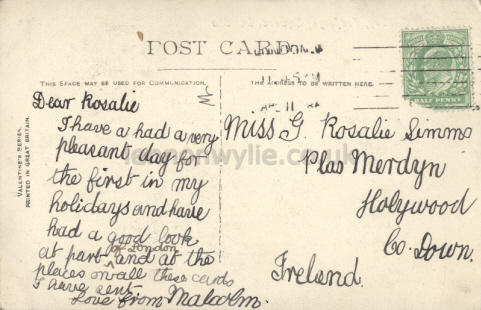 POST CARD
THIS SPACE MAY BE USED FOR COMMUNICATION.
THE ADDRESS TO BE WRITTEN HERE.
VALENTINE'S SERIES.
PRINTED IN GREAT BRITAIN.
HALF PENNY
Dear Rosalie
I have a had a very
pleasant day for
the first in my
holidays and have
had a good look
of London
at part and at the
places on all these cards
I have sent
Love from Malcolm.
Miss G. Rosalie Simms
Plas Merdyn
Holywood
Co. Down.
Ireland.